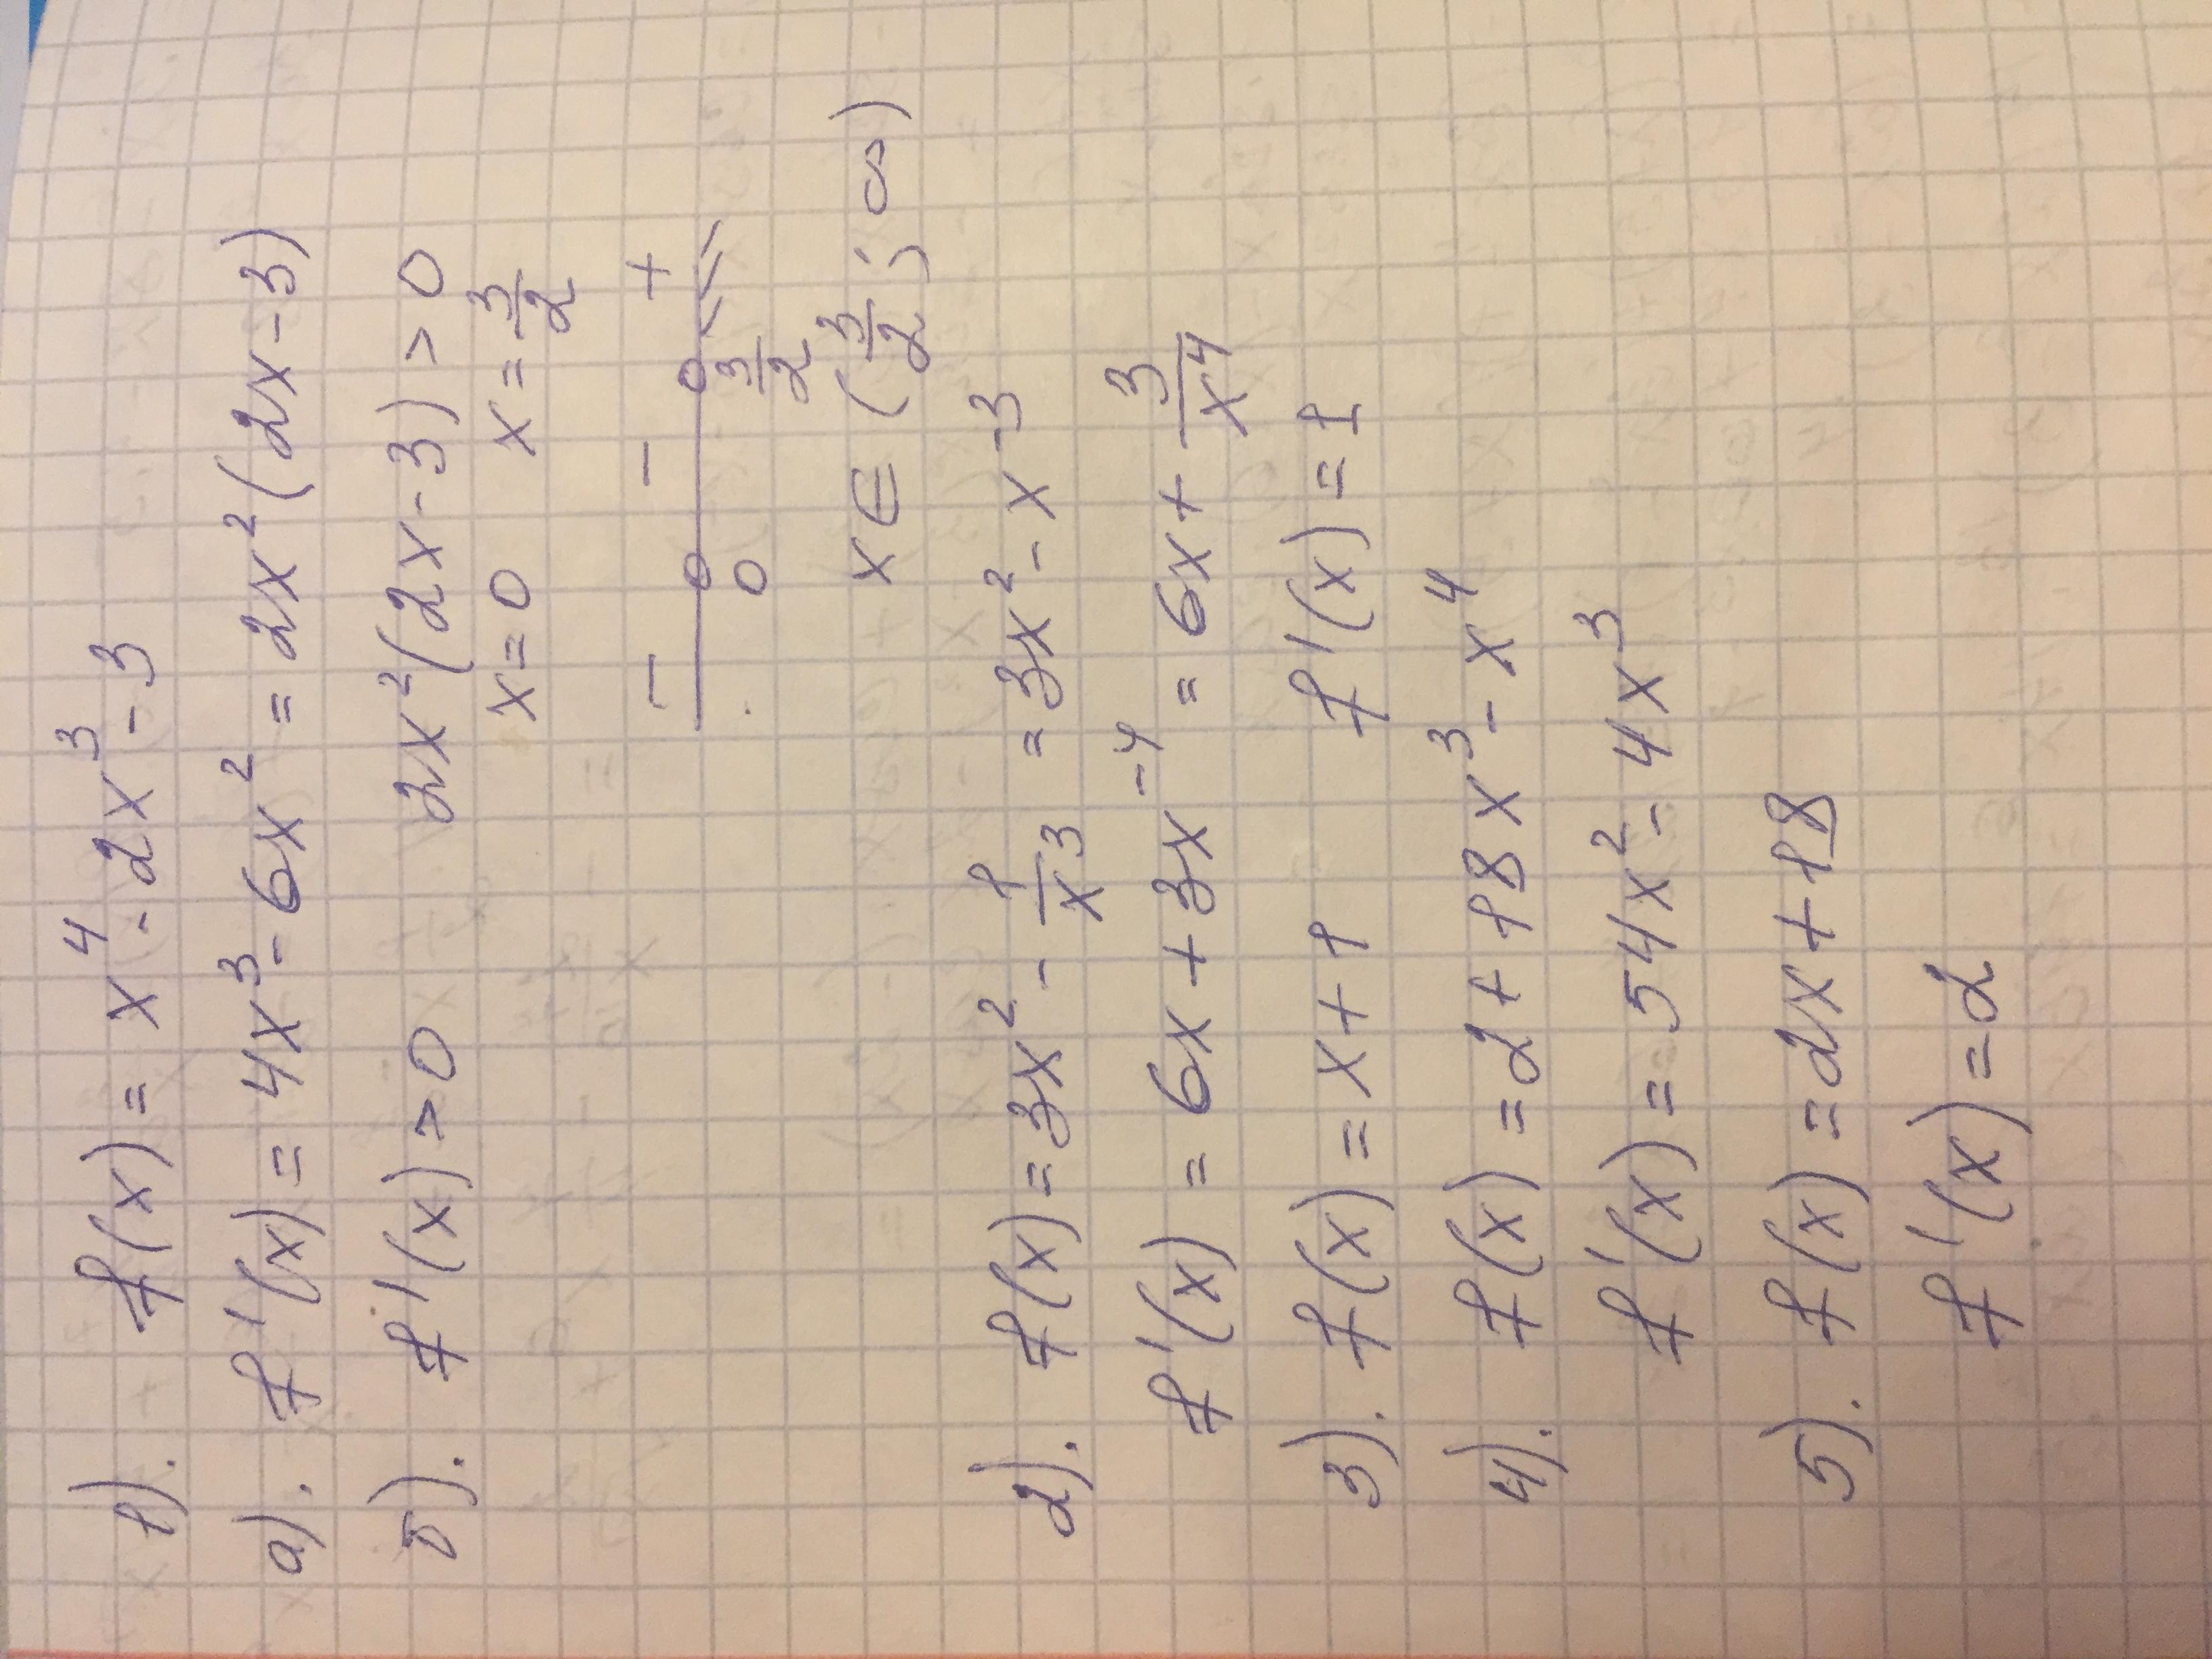 1). f(x) = x⁴ - 2x³ - 3
а). f'(x) = 4x³ - 6x² = 2x²(2x - 3)
б). f'(x) > 0 2x²(2x - 3) > 0
x = 0 x = 3/2
- - +
0 3/2
x ∈ (3/2; ∞)
2). f(x) = 3x² - 1/x³ = 3x² - x⁻³
f'(x) = 6x + 3x⁻⁴ = 6x + 3/x⁴
3). f(x) = x + 1 f'(x) = 1
4). f(x) = 2 + 18x³ - x⁴
f'(x) = 54x² - 4x³
5). f(x) = 2x + 18
f'(x) = 2